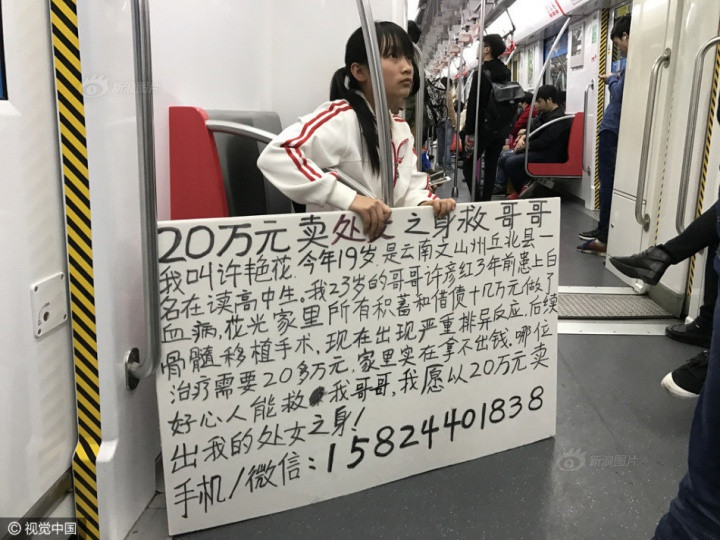 新浪图片
20万元 卖处女之身救哥哥
我叫许艳花.今年19岁是云南文山州丘北县一
名在读高中生。我23岁的哥哥许彦红3年前患上白
血病,花光家里所有积蓄和借债十几万元做了
骨髓移植手术,现在出现严重排异反应,后续
治疗需要20多万元,家里实在拿不出钱.哪位
好心人能救我哥哥,我愿以20万元卖
出我的处女之身!
手机/微信:15824401838
新浪图片
© 视觉中国